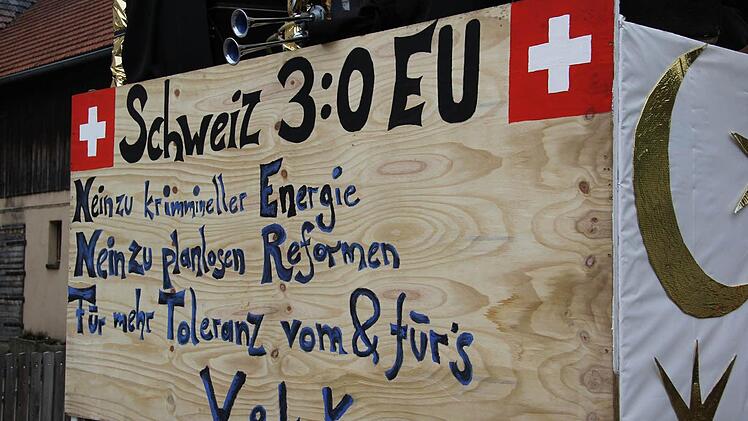 Schweiz 3:0 EU
Nein zu krimineller Energie
Nein zu planlosen Reformen
Für mehr Toleranz vom & für's
Volk